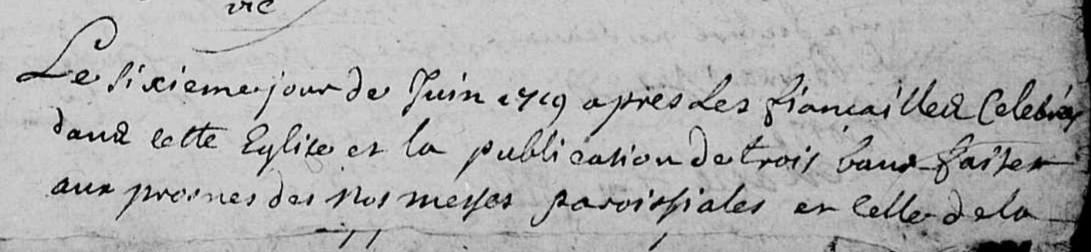 vic
Le sixieme jour de Juin 1719 apres les fiancailles Celebrés
dans cette Eglise et la publication de trois bans faites
aux prosnes des nos messes paroissiales et celle de la